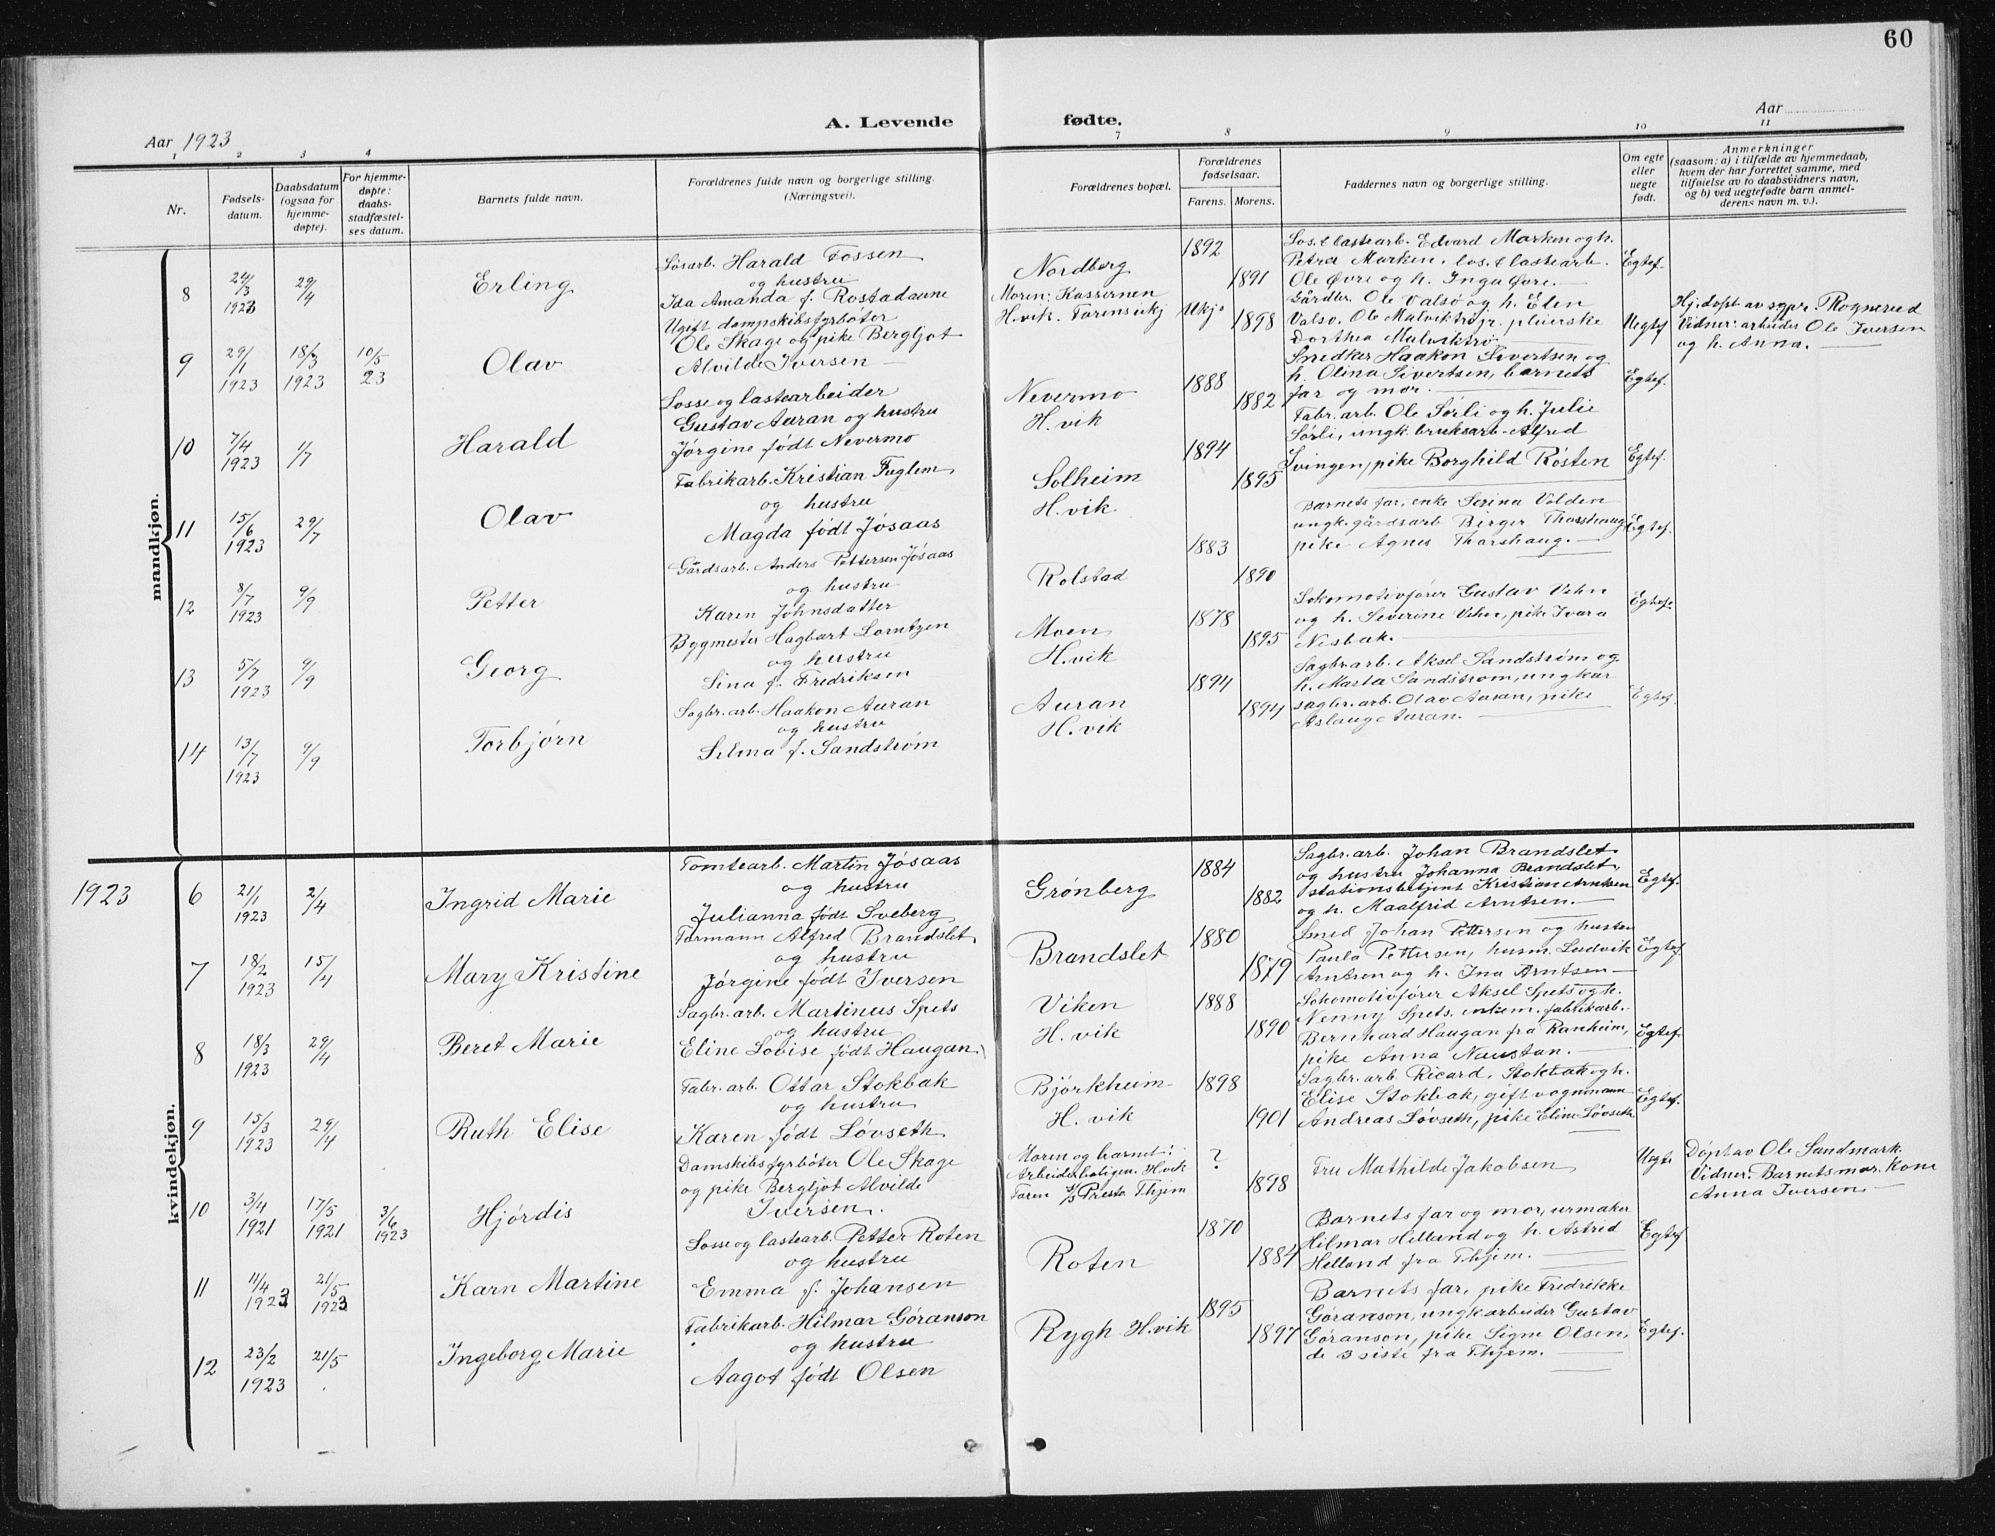 60
Aar 1923
A. Levende
fødte.
Aar
1 2 3 4 7 8 9 10 11
Nr.
Fødsels-
datum.
Daabsdatum
(ogsaa for
hjemme-
døpte).
For hjemme-
døpte:
daabs-
stadfæstel-
ses datum.
Barnets fulde navn.
Forældrenes fulde navn og borgerlige stilling.
(Næringsvei).
Forældrenes bopæl.
Forældrenes
fødselsaar.
Farens. Morens.
Faddernes navn og borgerlige stilling.
Om egte
eller
uegte
født.
Anmerkninger
(saasom: a) i tilfælde av hjemmedaab,
hvem der har forrettet samme, med
tilføielse av to daabsvidners navn,
og b) ved uegtefødte barn anmel-
derens navn m. v.).
mandkjøn.
8
24/3
1923
29/4
Erling
Løsarb. Harald Fossen
og hustru
Ida Amanda f. Rostadaune
Nordberg
1892
1891
Los. & lastearb. Edvard Marken og h.
Petra Marken, los. & lastearb.
Ole Øvre og h. Inga Øvre.
Egtef.
9
29/1
1923
18/3
1923
10/5
23
Olav
Ugift dampskibsfyrbøter
Ole Skage og pike Bergljot
Alvilde Iversen
Moren: Kassernen
H.vik. Farens ukj
Ukj.
1898
Gårdbr. Ole Valsø og h. Elen
Valsø. Ole Malviktrø jr. pleierske
Dorthea Malviktrø.
Uegtef
Hj.døpt av sgpr. Rognerud
Vidner: arbeider Ole Iversen
og h. Anna.
10
7/4
1923
1/7
Harald
Losse og lastearbeider
Gustav Auran og hustru
Jørgine født Nevermo
Nevermo
H.vik
1888
1882
Snedker Haakon Sivertsen og
h. Olina Sivertsen, barnets
far og mor.
Egtef.
11
15/6
1923
29/7
Olav
Fabrikarb. Kristian Fuglem
og hustru
Magda født Jøsaas
Solheim
H.vik
1894
1895
Fabr. arb. Ole Sørli og h. Julie
Sørli, ungk. bruksarb. Alfred
Svingen, pike Borghild Røsten
Egtef.
12
8/7
1923
9/9
Petter
Gårdsarb. Anders Pettersen Jøsaas
og hustru
Karen Johnsdatter
Rolstad
1883
1890
Barnets far, enke Serina Volden
ungk. gårdsarb Birger Tharshaug
pike Agnes Tharshaug.
Egtef.
13
5/7
1923
9/9
Georg
Bygmester Hagbart Lorntzen
og hustru
Lina f. Fredriksen
Moen
H.vik
1878
1895
Lokomotivfører Gustav Vehn
og h. Severine Vehn, pike Ivara
Nesbak.
Egtef.
14
13/7
1923
9/9
Torbjørn
Sagbr. arb. Haakon Auran
og hustru
Selma f. Sandstrøm
Auran
H.vik
1894
1894
Sagbr. arb. Aksel Sandstrøm og
h. Marta Sandstrøm, ungkar
sagbr. arb. Olav Auran, pike
Aslaug Auran.
Egtef.
1923
kvindekjøn.
6
21/1
1923
2/4
Ingrid Marie
Tomtearb. Martin Jøsaas
og hustru
Julianna født Sveberg
Grønberg
1884
1882
Sagbr. arb. Johan Brandslet
og hustru Johanna Brandslet,
stationsbetjent Kristian Arntsen
og h. Maalfrid Arntsen.
Egtef.
7
18/2
1923
15/4
Mary Kristine
Formann Alfred Brandslet
og hustru
Jørgine født Iversen
Brandslet
1880
1879
Smed Johan Pettersen og hustru
Paula Pettersen, husm. Ludvik
Arntsen og h. Ina Arntsen
Egtef.
8
18/3
1923
29/4
Beret Marie
Sagbr. arb. Martinus Spets
og hustru
Eline Lovise født Haugan
Viken
H.vik
1888
1890
Lokomotivfører Aksel Spets og h.
Nenny Spets, fabrikarb.
Bernhard Haugan fra Ranheim,
pike Anna Naustan.
Egtef.
9
15/3
1923
29/4
Ruth Elise
Fabr. arb. Ottar Stokbak
og hustru
Karen født Løvseth
Bjørkheim
H. vik
1898
1901
Sagbr. arb Ricard. Stokbak og h.
Elise Stokbak, gift vognmann
Andreas Løvseth, pike Eline Løvseth
Egtef.
10
3/4
1921
17/5
1921
3/6
1923
Hjørdis
Damskibsfyrbøter Ole Skage
og pike Bergljot Alvilde
Iversen.
Moren og barnet:
Arbeiderboligen H.vik
Faren S/S Presto Thjem
?
1898
Fru Mathilde Jakobsen
Uegte
Døpt av Ole Sandmark.
Vidner: Barnets mor, Kone
Anna Iversen
11
11/4
1923
21/5
1923
Karn Martine
Losse og lastearb. Petter Roten
og hustru
Emma f. Johansen
Roten
1870
1884
Barnets far og mor, urmaker
Hilmar Helland og h. Astrid
Helland fra Thjem.
Egtef
12
23/2
1923
21/5
Ingeborg Marie
Fabrikarb. Hilmar Göranson
og hustru
Aagot født Olsen
Rygh H.vik
1895
1897
Barnets far, pike Fredrikke
Göranson, ungk arbeider Gustav
Göranson, pike Signe Olsen,
de 3 siste fra Thjem.
Egtef.